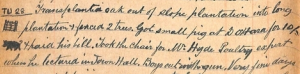 TU 25 Transplanted oak out of slope plantation into long
plantation & fenced 2 trees. Got small pig at D. O'Hara for 10/-
& paid his bill. Took the chair for Mr Hyde Poultry expert
when he lectured in Town Hall. Boys out with gun. Very fine day